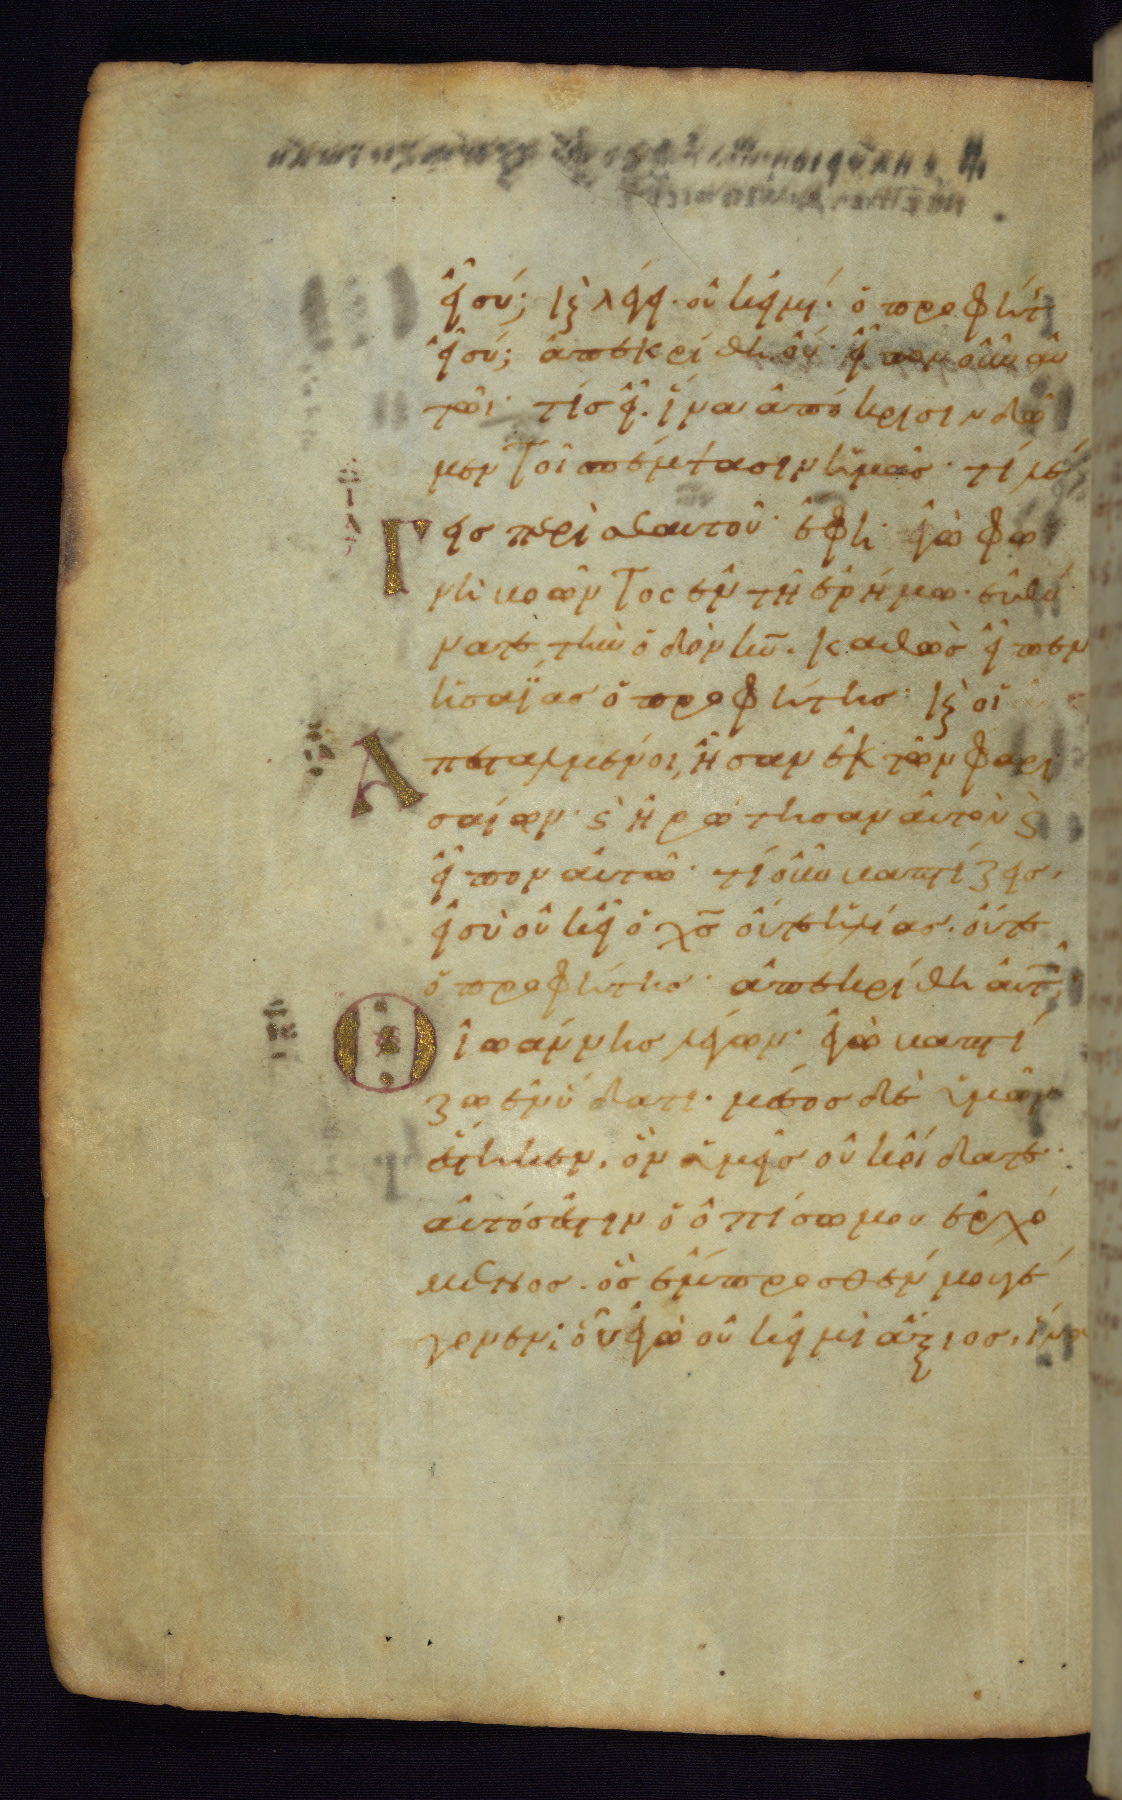 εἶ σύ; κ(αὶ) λέγει· οὐκ εἰμί· ὁ προφήτης
εἶ σύ; ἀπεκρίθη οὔ· εἶπον οὖν αὐ
τῶι· τίς εἶ. ἵνα ἀπόκρισιν δῶ
μεν τοῖς πέμψασιν ἡμᾶς· τί λέ
γεις περὶ σεαυτοῦ· ἔφη· ἐγὼ φω
νὴ βοῶντος ἐν τῆ ἐρήμω· εὐθύ
νατε τὴν ὁδὸν κυ̅. καθὼς εἶπεν
ἡσαΐας ὁ προφήτης· κ(αὶ) οἱ
ἀπεσταλμένοι, ἦσαν ἐκ τῶν φαρι
σαίων· ϗ̀ ἠρώτησαν αὐτὸν ϗ̀
εἶπον αὐτῶ· τί οὖν βαπτίζεις,
εἰ σὺ οὐκ εἶ ὁ χς̅ οὔτε ἠλίας. οὔτε
ὁ προφήτης· ἀπεκρίθη αὐτ̅
ὁ ἰωάννης λέγων· ἐγὼ βαπτί
ζω ἐν ὕδατι· μέσος δὲ ὑμῶν
ἕστηκεν, ὃν ὑμεῖς οὐκ οἴδατε·
αὐτός ἐστιν ὁ ὀπίσω μου ἐρχό
μενος. ὃς ἔμπροσθέν μου γέ
γονεν; οὗ ἐγὼ οὐκ εἰμὶ ἄξιος, ἵνα